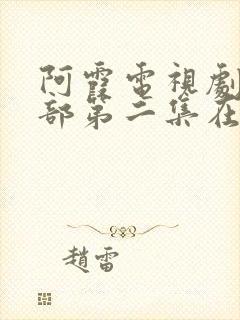 阿霞電視劇
部第二集在
趙雷